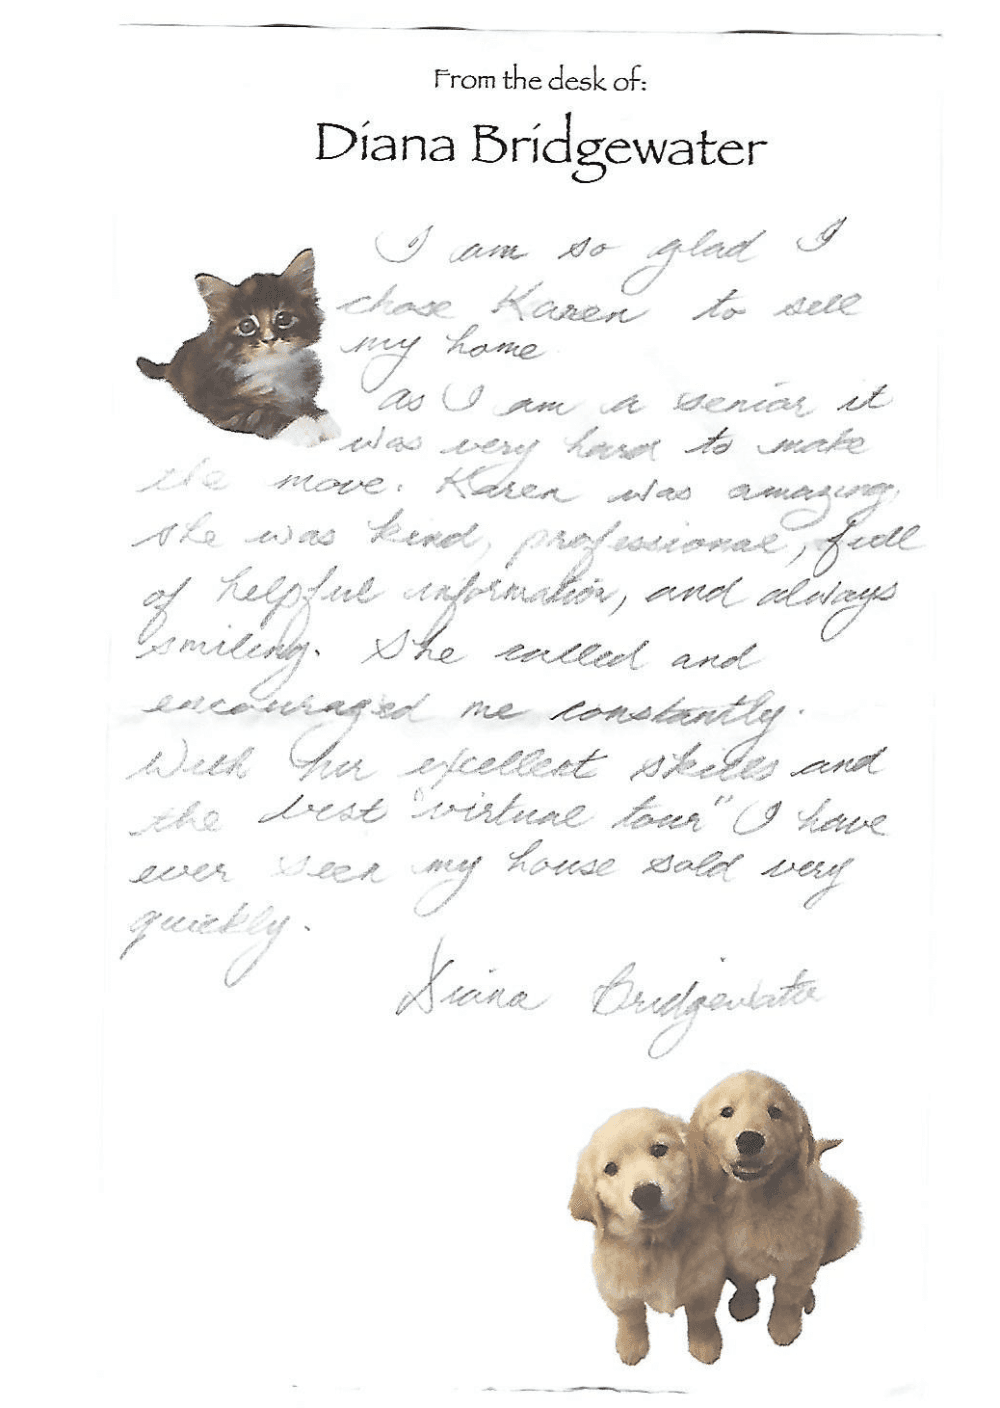 From the desk of:
Diana Bridgewater
I am so glad I
chose Karen to sell
my home
as I am a senior it
was very hard to make
the move. Karen was amazing,
she was kind, professional, full
of helpful information, and always
smiling. She called and
encouraged me constantly.
With her excellent skills and
the best "virtual tour" I have
ever seen my house sold very
quickly.
Diana Bridgewater